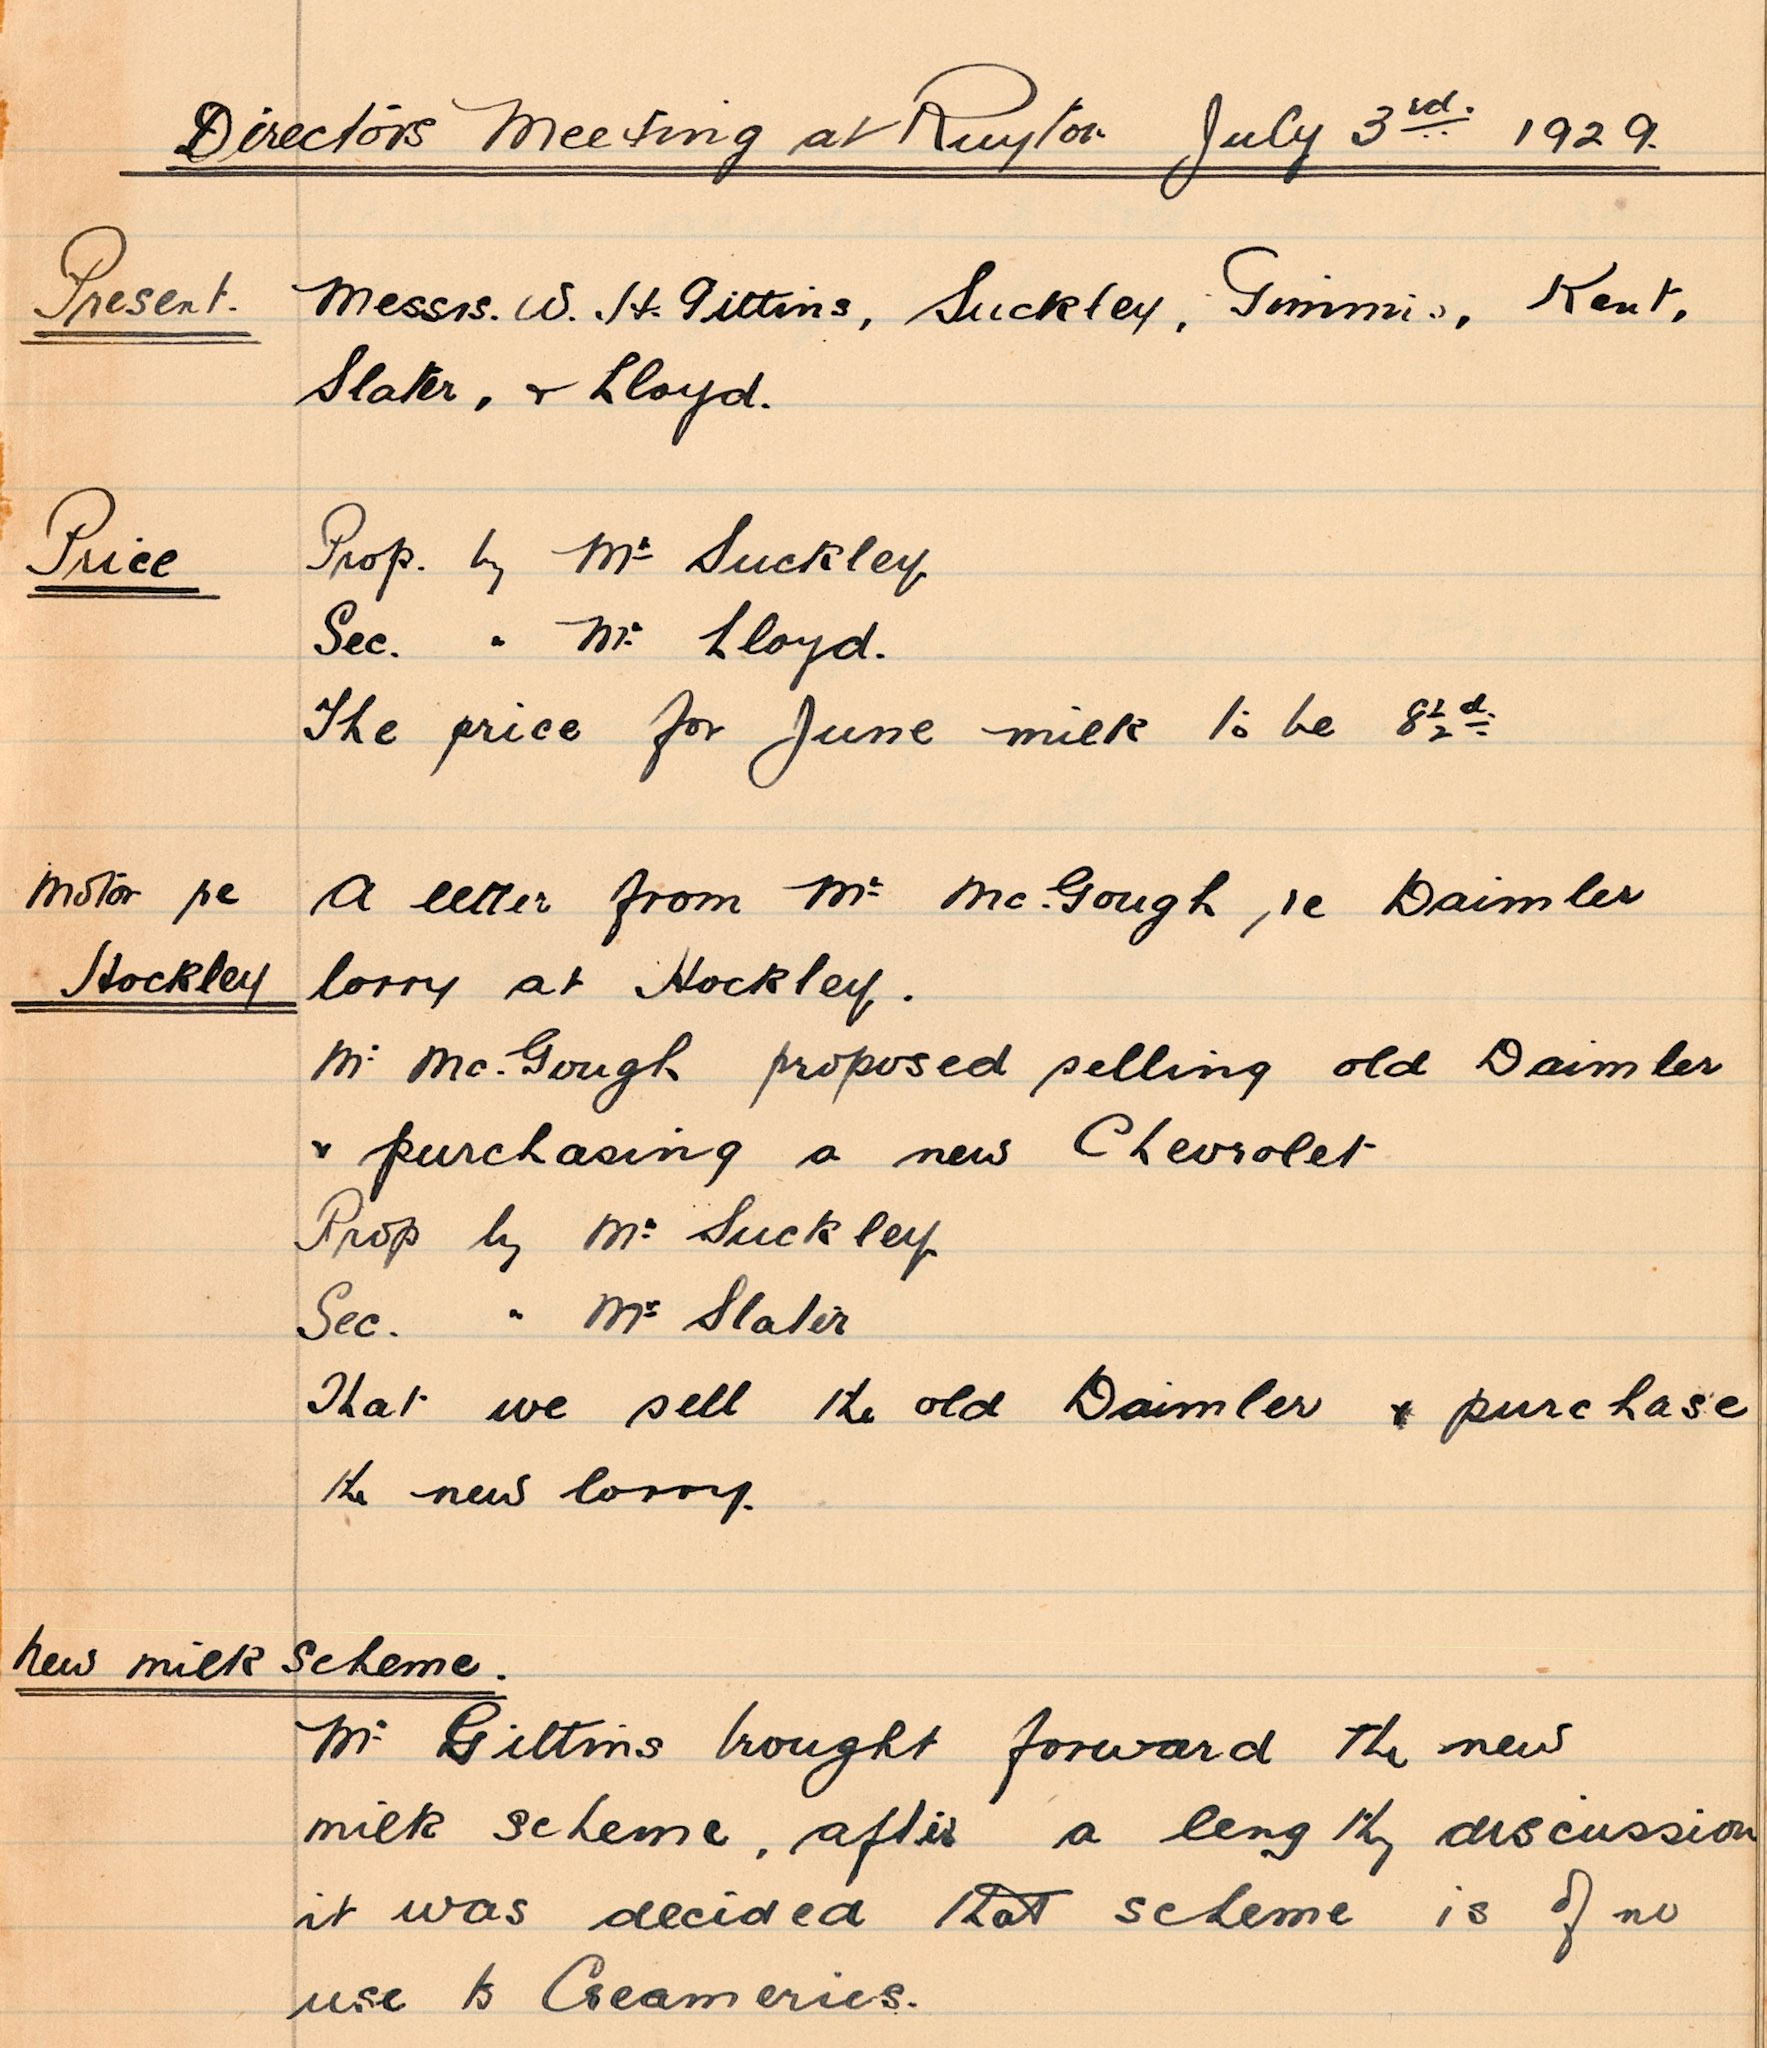 Directors Meeting at Ruyton July 3rd. 1929.
Present. Messrs. W. H. Gittins, Suckley, Timmis, Kent,
Slater, & Lloyd.
Price Prop. by Mr Suckley
Sec. " Mr Lloyd.
The price for June milk to be 8½d.
Motor re A letter from Mr Mc.Gough re Daimler
Hockley lorry at Hockley.
Mr Mc.Gough proposed selling old Daimler
& purchasing a new Chevrolet
Prop by Mr Suckley
Sec. " Mr Slater
That we sell the old Daimler & purchase
the new lorry.
New milk scheme.
Mr Gittins brought forward the new
milk scheme, after a lengthy discussion
it was decided that scheme is of no
use to Creameries.